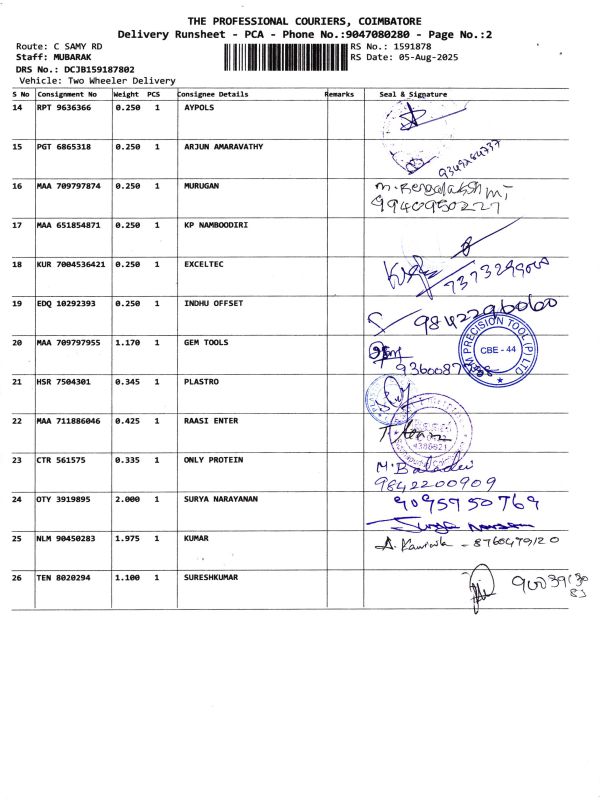 THE PROFESSIONAL COURIERS, COIMBATORE
Delivery Runsheet - PCA - Phone No.:9047080280 - Page No.:2
Route: C SAMY RD RS No.: 1591878
Staff: MUBARAK RS Date: 05-Aug-2025
DRS No.: DCJB159187802
Vehicle: Two Wheeler Delivery
S No Consignment No Weight PCS Consignee Details Remarks Seal & Signature
14 RPT 9636366 0.250 1 AYPOLS
15 PGT 6865318 0.250 1 ARJUN AMARAVATHY
16 MAA 709797874 0.250 1 MURUGAN
9940950227
17 MAA 651854871 0.250 1 KP NAMBOODIRI
18 KUR 7004536421 0.250 1 EXCELTEC
19 EDQ 10292393 0.250 1 INDHU OFFSET
20 MAA 709797955 1.170 1 GEM TOOLS
PRECISION TOOL (P) LTD
CBE - 44
21 HSR 7504301 0.345 1 PLASTRO
22 MAA 711886046 0.425 1 RAASI ENTER
23 CTR 561575 0.335 1 ONLY PROTEIN
M. Baladevi
9842200909
24 OTY 3919895 2.000 1 SURYA NARAYANAN
9095950769
25 NLM 90450283 1.975 1 KUMAR
8760479120
26 TEN 8020294 1.100 1 SURESHKUMAR